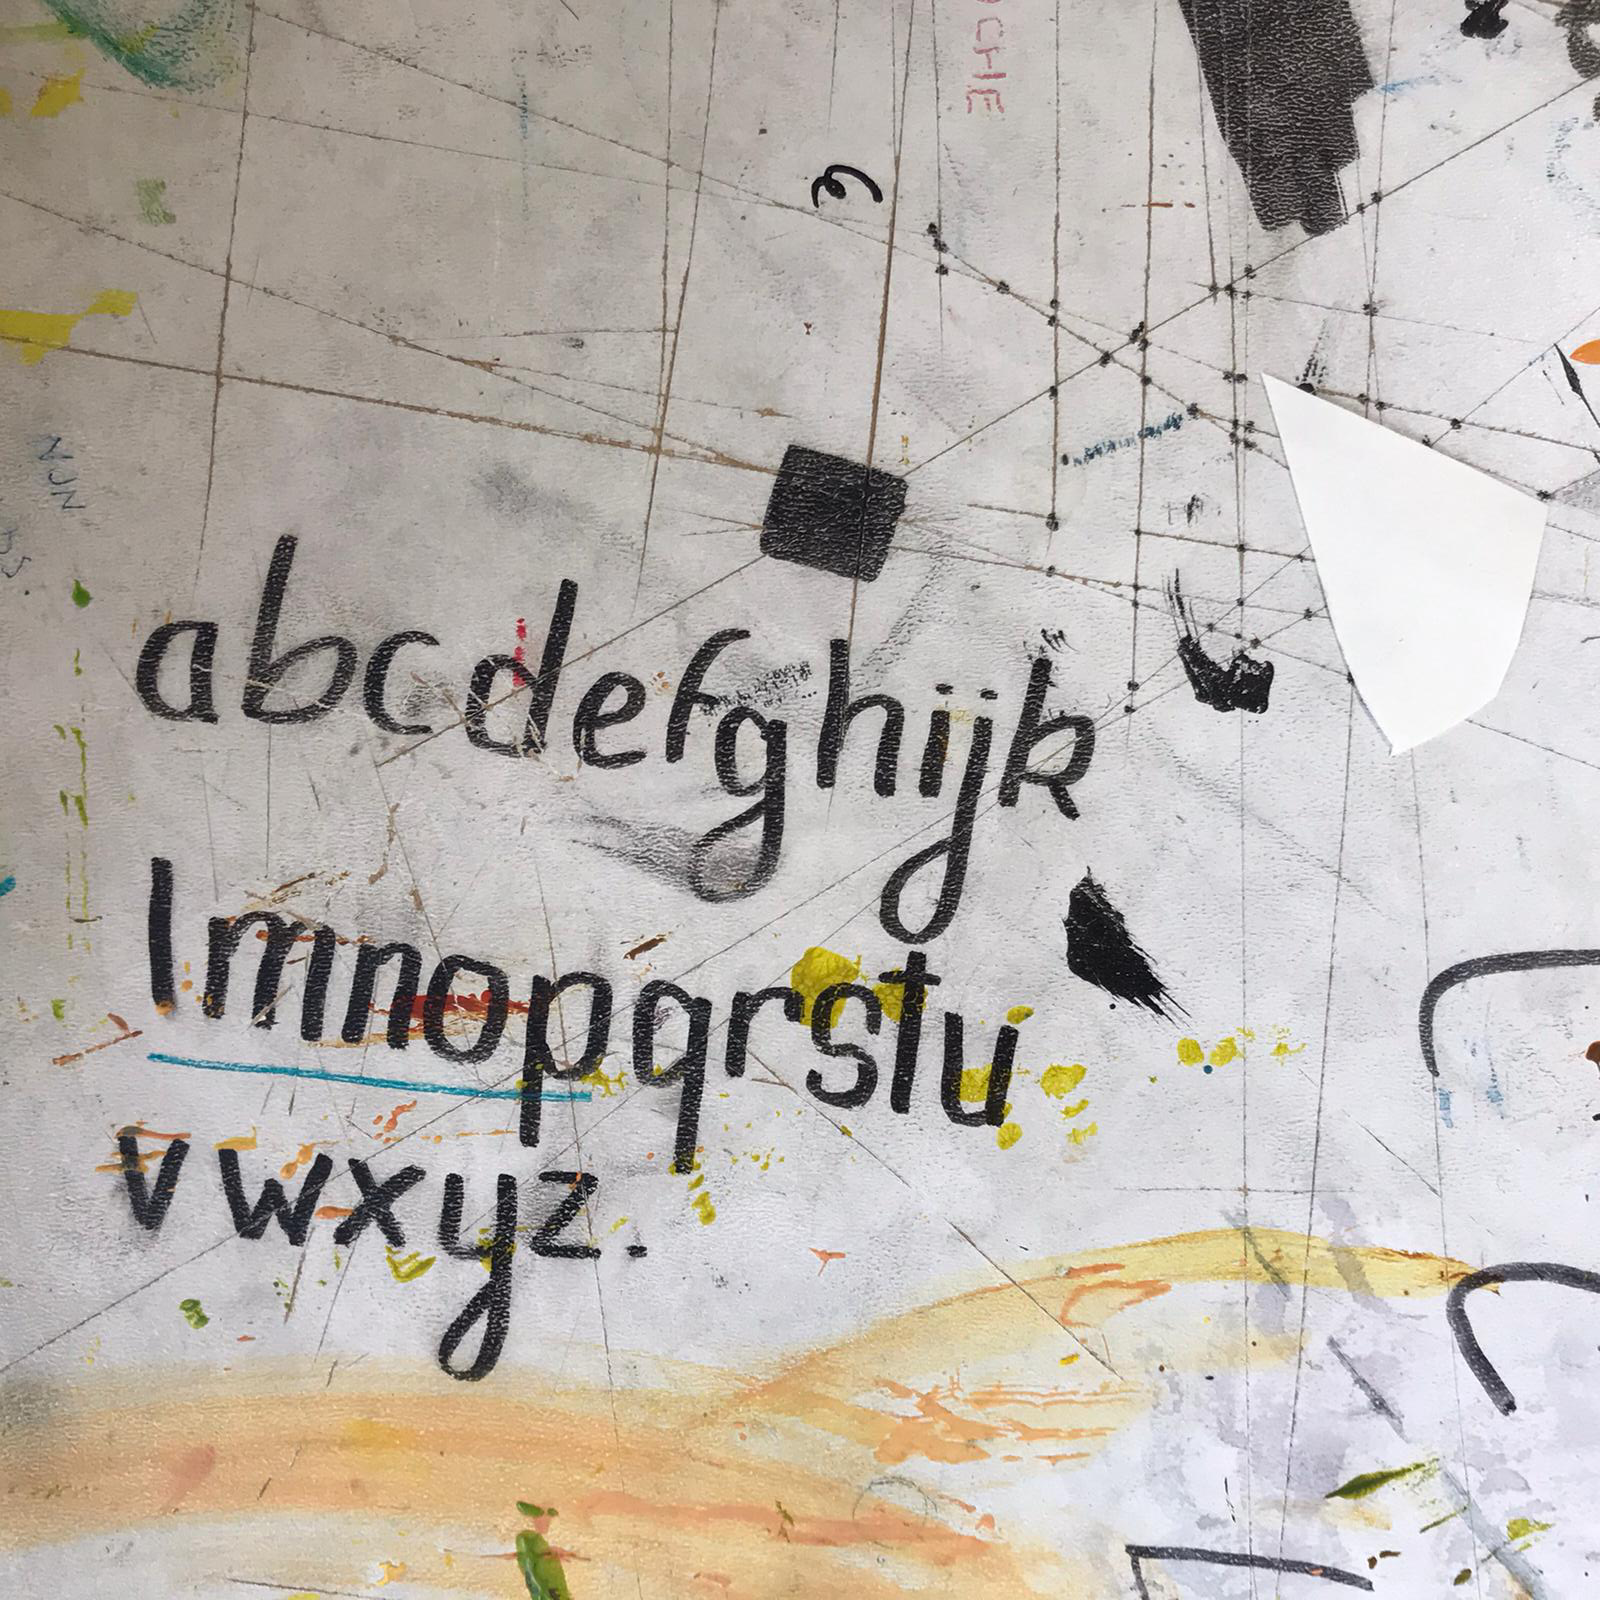 OCHE
abcdefghijk
lmnopqrstu
vwxyz.